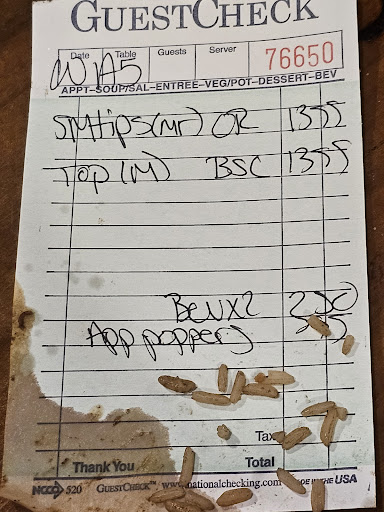 GUESTCHECK
Date Table Guests Server 76650
W1A5
APPT-SOUP/SAL-ENTREE-VEG/POT-DESSERT-BEV
SMtips(mr) OR 1355
Top (M) BSC 1355
Bevx2
App poppers
Tax
Thank You Total
NCCO 520 GUESTCHECK™ www.nationalchecking.com MADE IN THE USA